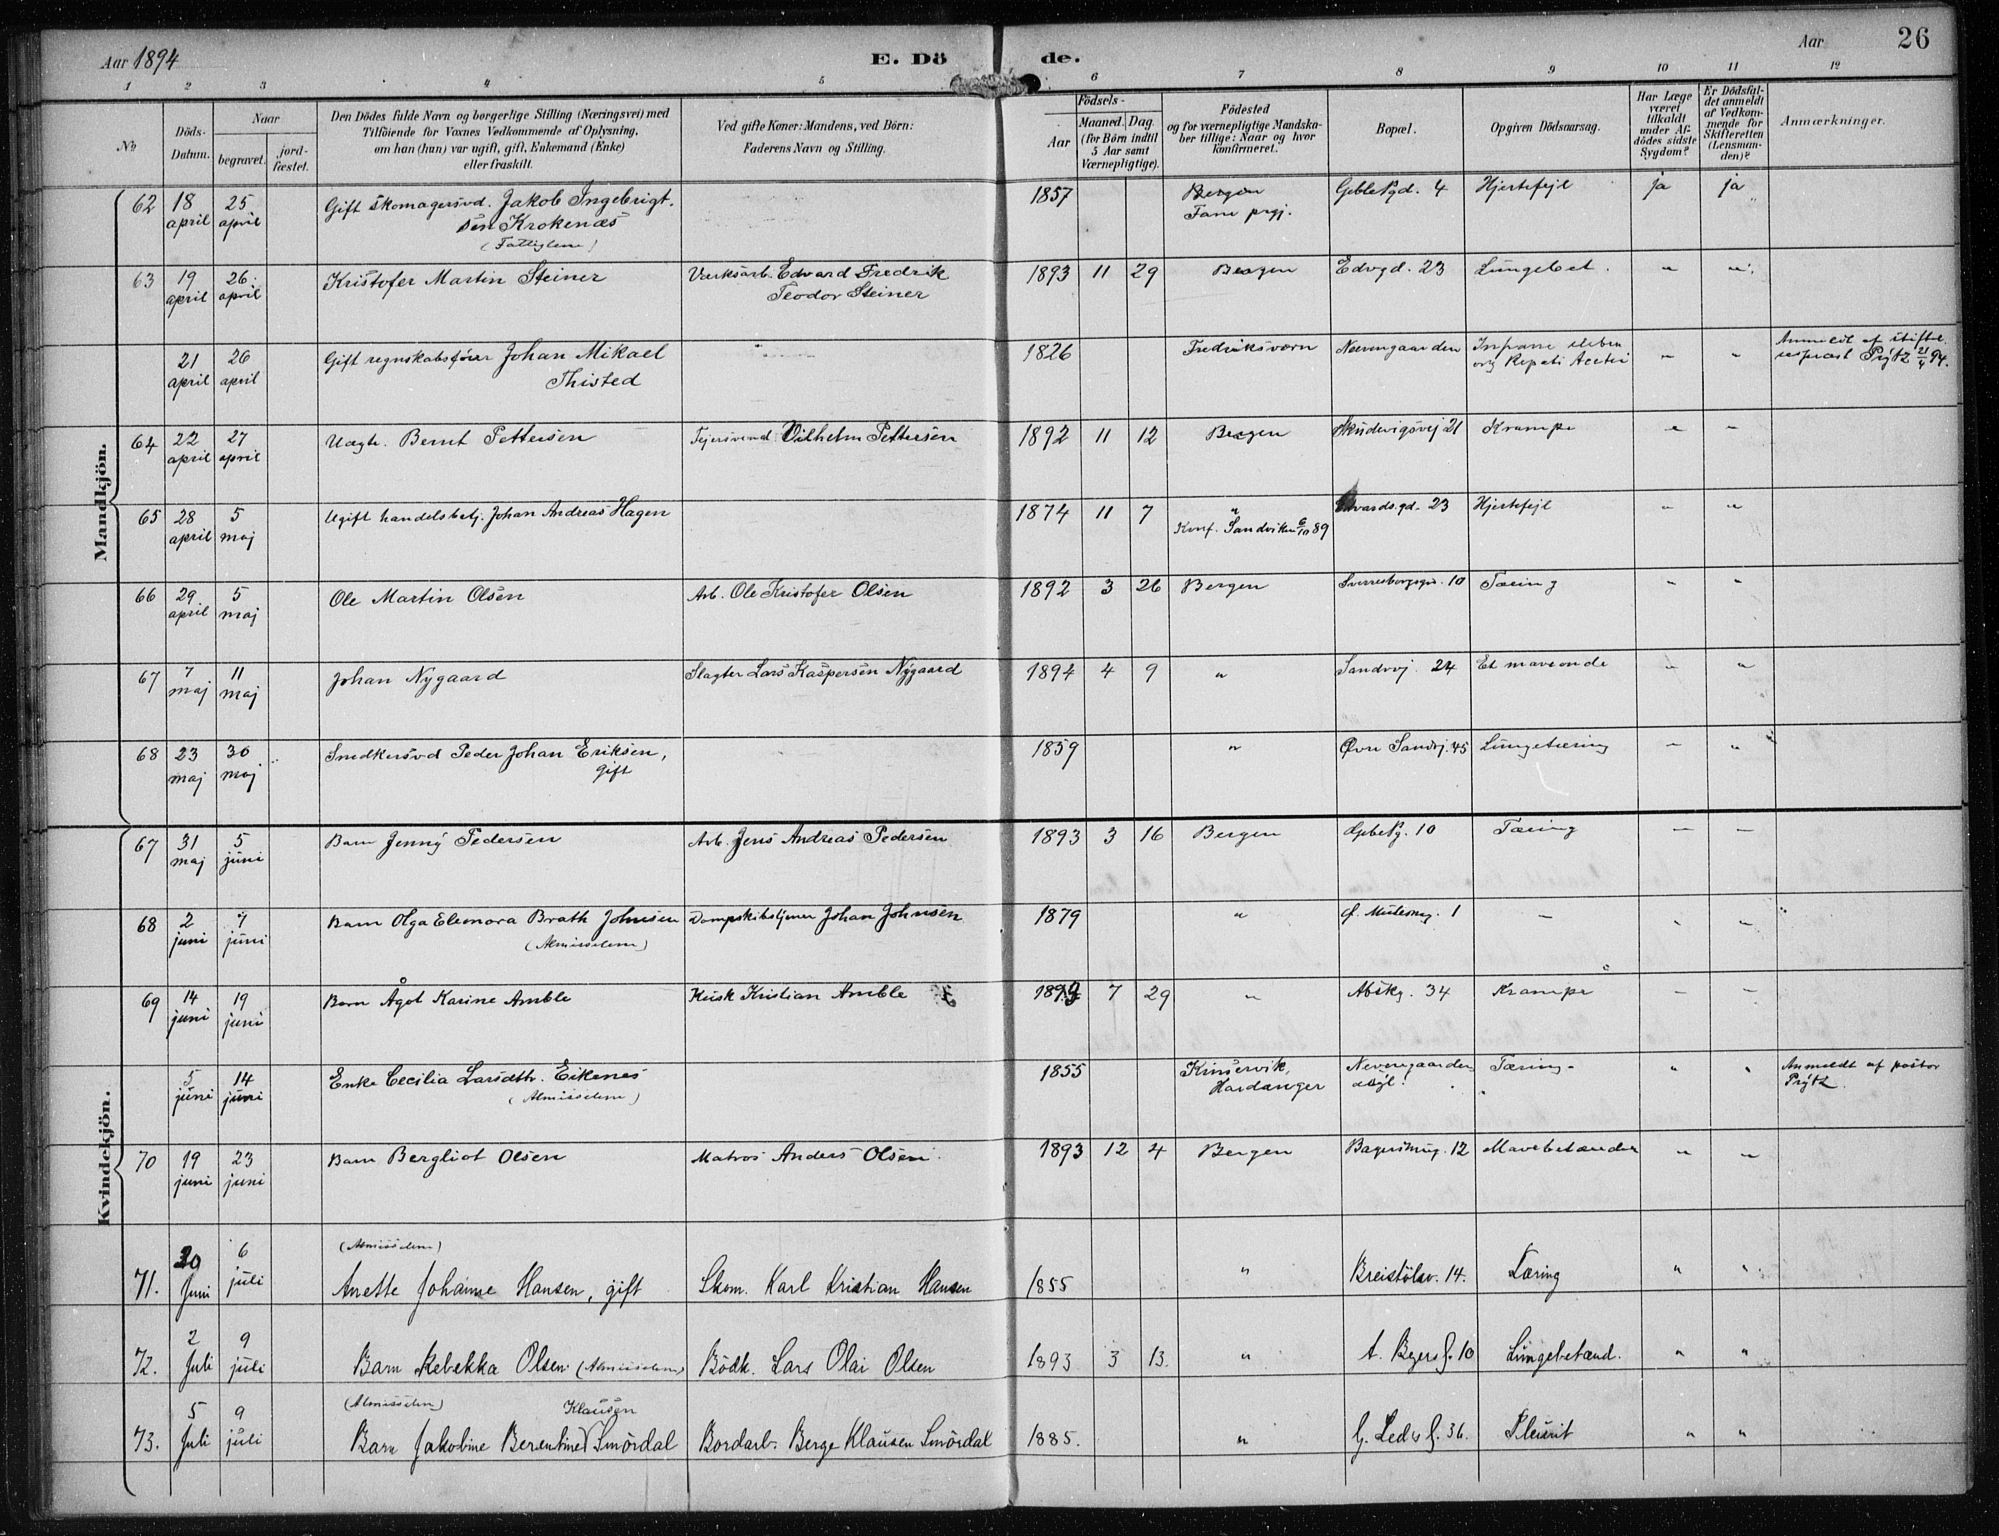 Aar 1894
E. Dö de.
Aar 26
1 2 3 4 5 6 7 8 9 10 11 12
No
Döds-Datum.
Naar
begravet.
jord-fæstet.
Den Dödes fulde Navn og borgerlige Stilling (Næringsvei) med
Tilföiende for Voxnes Vedkommende af Oplysning,
om han (hun) var ugift, gift, Enkemand (Enke)
eller fraskilt.
Ved gifte Koner: Mandens, ved Börn:
Faderens Navn og Stilling.
Födsels-
Aar
Maaned. Dag.
(for Börn indtil
5 Aar samt
Værnepligtige).
Födested
og for værnepligtige Mandska-
ber tillige: Naar og hvor
konfirmeret.
Bopæl.
Opgiven Dödsaarsag.
Har Læge
været
tilkaldt
under Af-
dödes sidste
Sygdom?
Er Dödsfal-
det anmeldt
af Vedkom-
mende for
Skifteretten
(Lensman-
den)?
Anmærkninger.
Mandkjön.
62 18 25 Gift skomagersvd. Jakob Ingebrigt. 1857 Bergen 4 Hjertefejl ja ja
april april sen Krokenæs Fane prgj.
(Fattiglem)
63 19 26 Kristofer Martin Steiner Værksarb. Edvard Fredrik 1893 11 29 Bergen Edvgd. 23 Lungebet. " "
april april Teodor Steiner
21 26 Gift regnskabsfører Johan Mikael " 1826 Fredriksværn Nevengaarden " " Anmeldt af stiftel
april april Thisted Prÿtz 21/4 94.
64 22 27 Uægte. Bernt Pettersen Fejersvend Vilhelm Pettersen 1892 11 12 Bergen Skudevigsvej 21 Krampe " "
april april
65 28 5 Ugift handelsbetj. Johan Andreas Hagen 1874 11 7 " Edvardsgd. 23 Hjertefejl " "
april maj Konf. Sandviken 6/10 89
66 29 5 Ole Martin Olsen Arb. Ole Kristofer Olsen 1892 3 26 Bergen Sverresborgsgd. 10 Tæring " "
april maj
67 7 11 Johan Nygaard Slagter Lars Kaspersen Nygaard 1894 4 9 " Sandvvj 24 Et maveonde " "
maj maj
68 23 30 Snedkersvd Peder Johan Eriksen, 1859 " Øvre Sandvj. 45 Lungetæring " "
maj maj gift
Kvindekjön.
67 31 5 Barn Jenny Pedersen Arb. Jens Andreas Pedersen 1893 3 16 Bergen 10 Tæring — —
maj juni
68 2 7 Barn Olga Eleonora Brath Johnsen Dampskibstjener Johan Johnsen 1879 " 1 — " "
juni juni (Almisselem)
69 14 19 Barn Ågot Karine Amble Kusk Kristian Amble 1893 7 29 " Abskg. 34 Krampe — —
juni juni
5 14 Enke Cecilia Larsdtr. Eikenes 1855 Kinservik, Nevengaarden Tæring. " " Anmeldt af pastor
juni juni (Almisselem) Hardanger asyl. Prÿtz.
70 19 23 Barn Bergliot Olsen Matros Anders Olsen. 1893 12 4 Bergen 12 Mavebetænder " "
juni juni
(Almisselem)
71. 30 6 Anette Johanne Hansen, gift Skom. Karl Kristian Hansen 1855 " Breistölsv. 14. Tæring " "
Juni juli
72. 2 9 Barn Rebekka Olsen (Almisselem) Bödk. Lars Olai Olsen 1893 3 13. " 10 Lungebetænd. " "
Juli juli
(Almisselem) Klausen
73. 5 9 Barn Jakobine Berentine Smördal Bordarb. Berge Klausen Smördal 1885. " 36. Pleurit " "
Juli juli